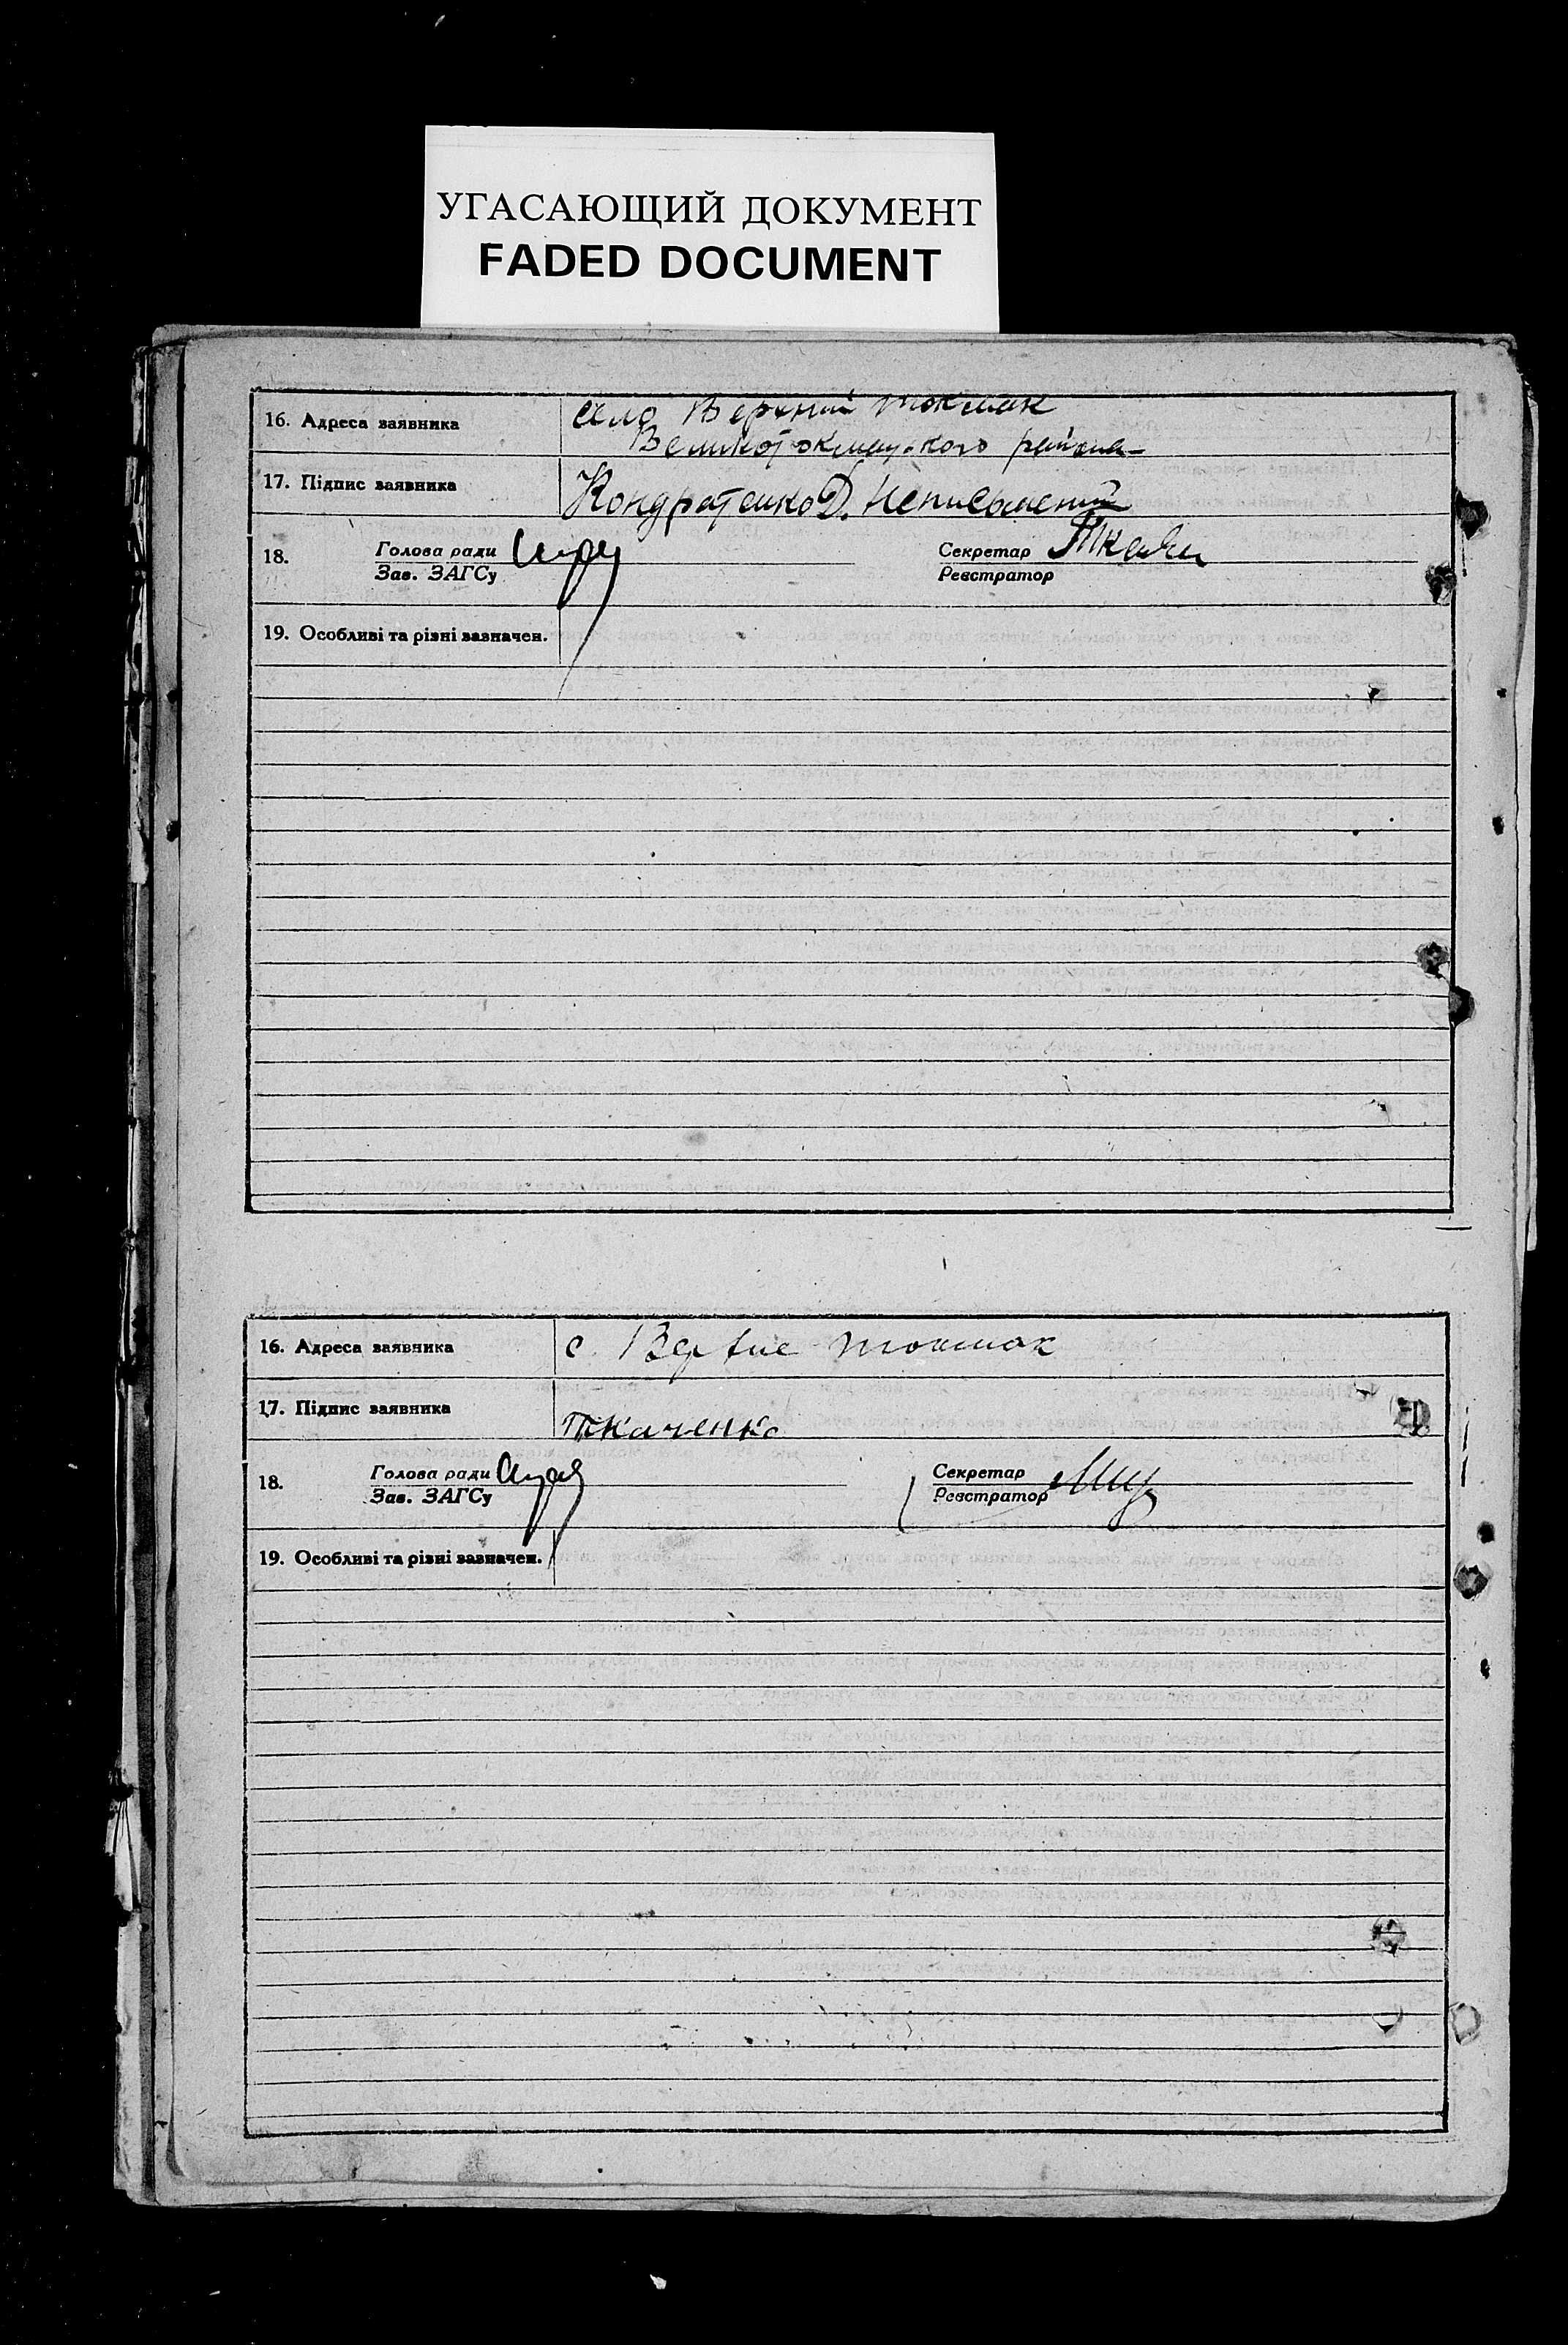 УГАСАЮЩИЙ ДОКУМЕНТ
FADED DOCUMENT
16. Адреса заявника село Верхний Токмак
Великотокмацкого района
17. Підпис заявника Кондратенко Д. Неписьмений
18. Голова ради Секретар
Зав. ЗАГСу Реєстратор
19. Особливі та різні зазначен.
16. Адреса заявника с. Токмак
17. Підпис заявника Ткаченко
18. Голова ради Секретар
Зав. ЗАГСу Реєстратор
19. Особливі та різні зазначен.